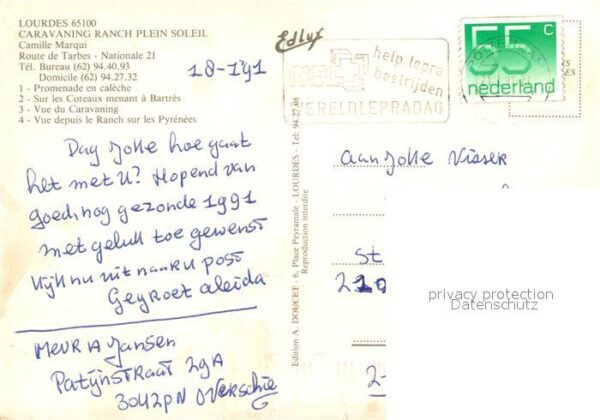 LOURDES 65100
CARAVANING RANCH PLEIN SOLEIL
Camille Marqui
Route de Tarbes - Nationale 21
Tél. Bureau (62) 94.40.93
Domicile (62) 94.27.32
1 - Promenade en calèche
2 - Sur les Coteaux menant à Bartrès
3 - Vue du Caravaning
4 - Vue depuis le Ranch sur les Pyrénées
18-1'91
Dag Jolle hoe gaat
het met U? Hopend van
goed, nog gezonde 1991
met geluk toe gewenst
Kijk nu uit naar U post
Gegroet aleida
MEVR A Jansen
Patijnstraat 29A
3042PN Overschie
Edlux
Edition A. DOUCET - 6, Place Peyramale - LOURDES - Tél: 94.27.08
Reproduction interdite
NSL
help lepra
bestrijden
WERELDLEPRADAG
55 C
nederland
Aan Jolle Visser
St
2-
privacy protection
Datenschutz